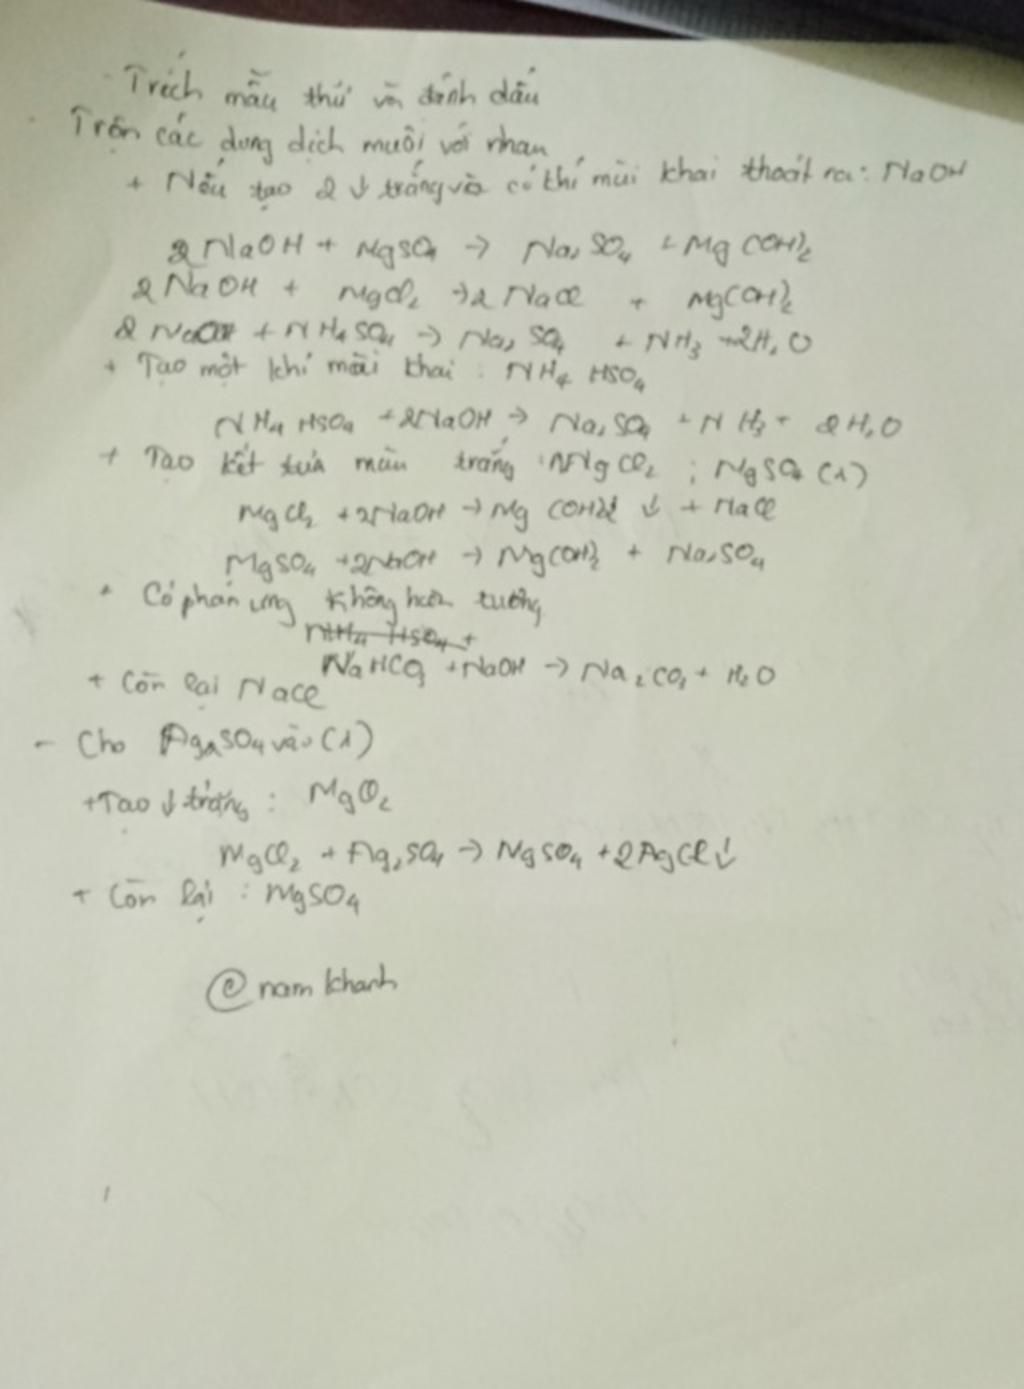 - Trích mẫu thử và đánh dấu
Trộn các dung dịch muối với nhau
+ Nếu tạo 2 ↓ trắng và có khí mùi khai thoát ra: NaOH
2NaOH + MgSO4 → Na2SO4 + Mg(OH)2
2NaOH + MgCl2 → 2NaCl + Mg(OH)2
2NaOH + NH4SO4 → Na2SO4 + NH3 + 2H2O
+ Tạo một khí mùi khai : NH4HSO4
NH4HSO4 + 2NaOH → Na2SO4 + NH3 + 2H2O
+ Tạo kết tủa màu trắng : MgCl2 ; MgSO4 (1)
MgCl2 + 2NaOH → Mg(OH)2 ↓ + NaCl
MgSO4 + 2NaOH → Mg(OH)2 + Na2SO4
+ Có phản ứng không hiện tượng
NH4HSO4 +
NaHCO3 + NaOH → Na2CO3 + H2O
+ Còn lại NaCl
- Cho Ag2SO4 vào (1)
+ Tạo ↓ trắng : MgCl2
MgCl2 + Ag2SO4 → MgSO4 + 2AgCl↓
+ Còn lại : MgSO4
@ nam khanh